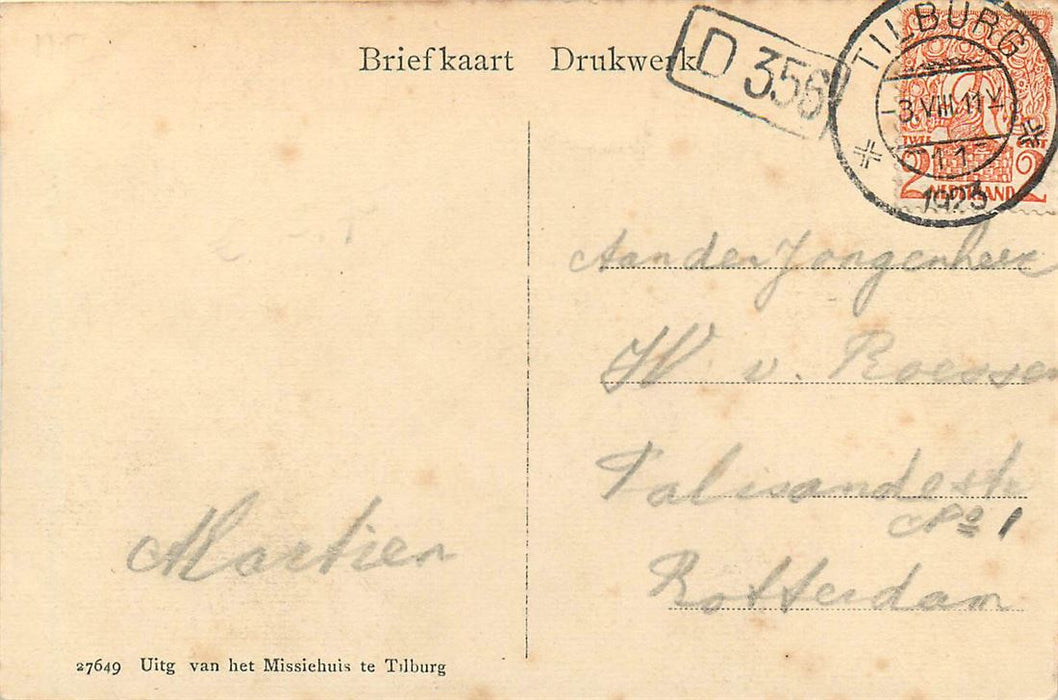 Briefkaart Drukwerk
D 356
TILBURG
-3.VIII.11-
1923
NEDERLAND
Aan den Jongenheer
W v. Roessen
Palisandestr
No 1
Rotterdam
Martien
27649 Uitg van het Missiehuis te Tilburg